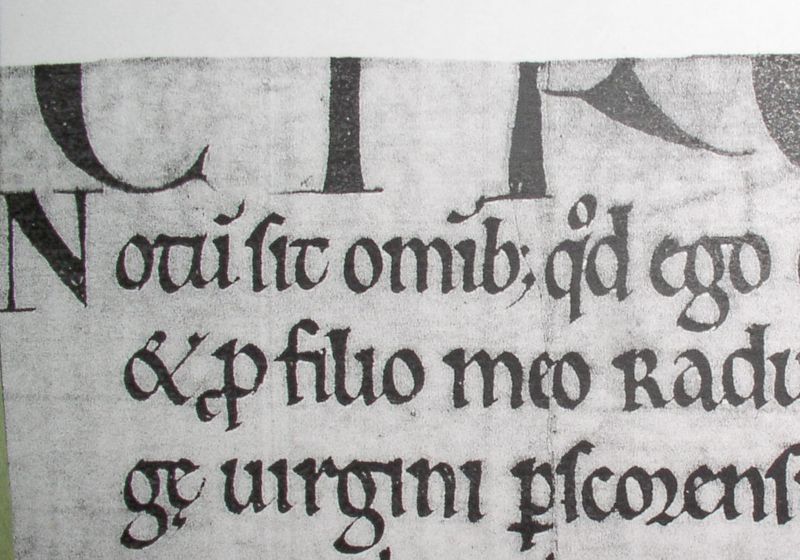 CIR
Notū sit omīb; qͦd ego
& ꝓ filio meo Radu
gę uirgini ꝑscorens